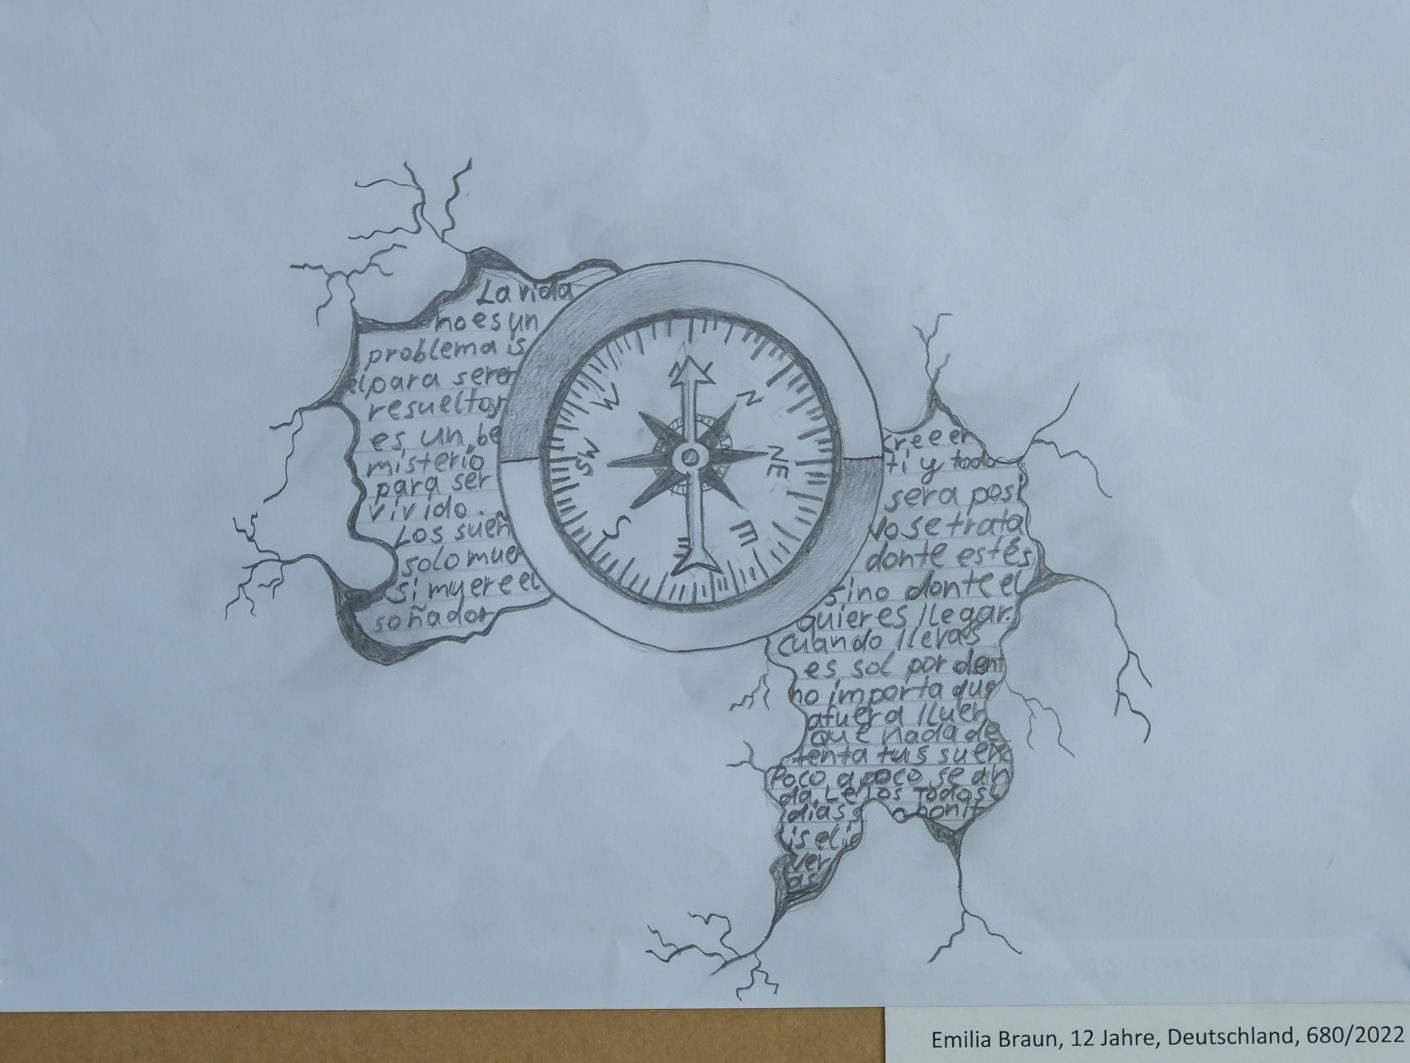 La vida
no es un
problema is
el para seren
resueltos
es un be
misterio
para ser
vivido.
Los sueñ
solo muer
si muere el
soñador
N
N
NE
E
S
SW
W
Creeer
ti y todo
sera pos
No se trata
donte estés
sino donte el
quieres llegar.
Cuando llevas
es sol por dent
no importa que
afuera lluev
que nada de
tenta tus sueño
Poco a poco se an
da Lejos Todos
dias bonit
is elie
ver
as
Emilia Braun, 12 Jahre, Deutschland, 680/2022